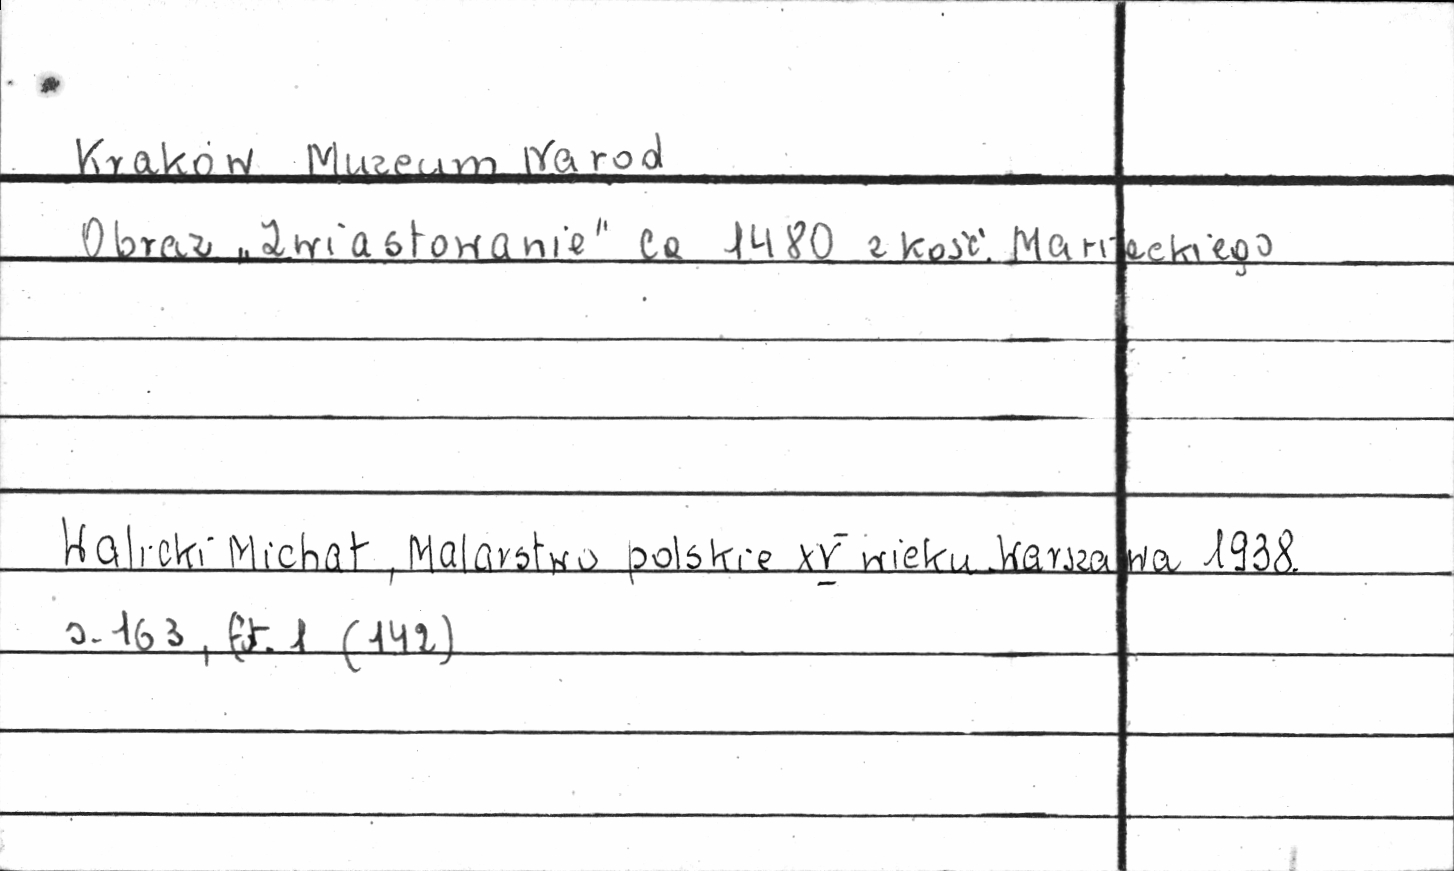 Kraków Muzeum Narod
Obraz „Zwiastowanie" ca 1480 z kość. Mariackiego
Walicki Michał, Malarstwo polskie XV wieku Warszawa 1938.
s. 163, fit. 1 (142)